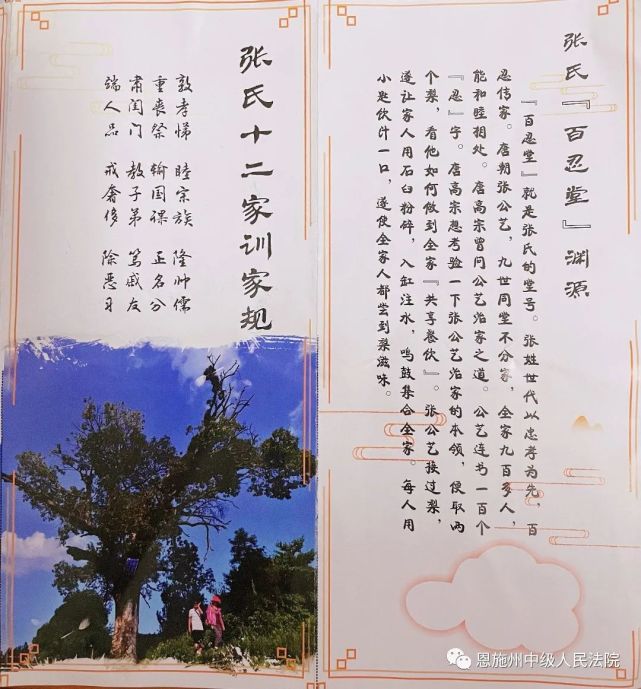 张氏『百忍堂』渊源
『百忍堂』就是张氏的堂号。张姓世代以忠孝为先，百
忍传家。唐朝张公艺，九世同堂不分家，全家九百多人，
能和睦相处。唐高宗曾问公艺治家之道。公艺连书一百个
『忍』字。唐高宗想考验一下张公艺治家的本领，便取两
个梨，看他如何做到全家『共享餐饮』。张公艺接过梨，
遂让家人用石臼粉碎，入缸注水，鸣鼓集合全家。每人用
小匙饮汁一口，遂使全家人都尝到梨滋味。
张氏十二家训家规
敦孝悌 睦宗族 隆帅儒
重丧祭 输国课 正名分
肃闺门 教子弟 笃戚友
端人品 戒奢侈 除恶习
恩施州中级人民法院